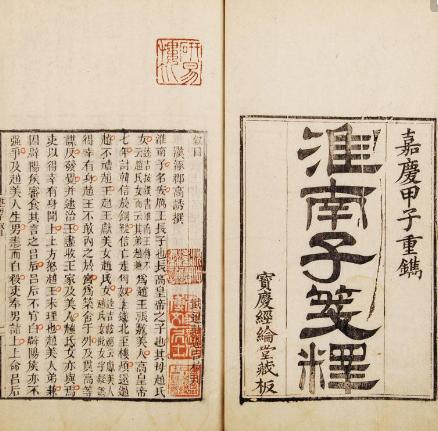 嘉慶甲子重鐫
淮南子箋釋
寶慶經綸堂藏板
研易樓
敘目
漢涿郡高誘撰
淮南子名安厲王長子也長高皇帝之子也其母趙氏
女為趙王張敖美人高皇帝
七年討韓信於銅鞮信亡走匈奴上遂北至樓煩還過
趙不禮趙王趙王獻美女趙氏女
得幸有身趙王不敢內之於宮為築舍于外及貫高等
謀反發覺并逮治王盡收王家及美人趙氏女亦與焉
吏以得幸有身聞上上方怒趙王未理也趙美人弟兼
因辟陽侯審食其言之呂后呂后不肯白辟陽侯亦不
強爭及趙美人生男恚而自殺吏奉男詣上上命呂后